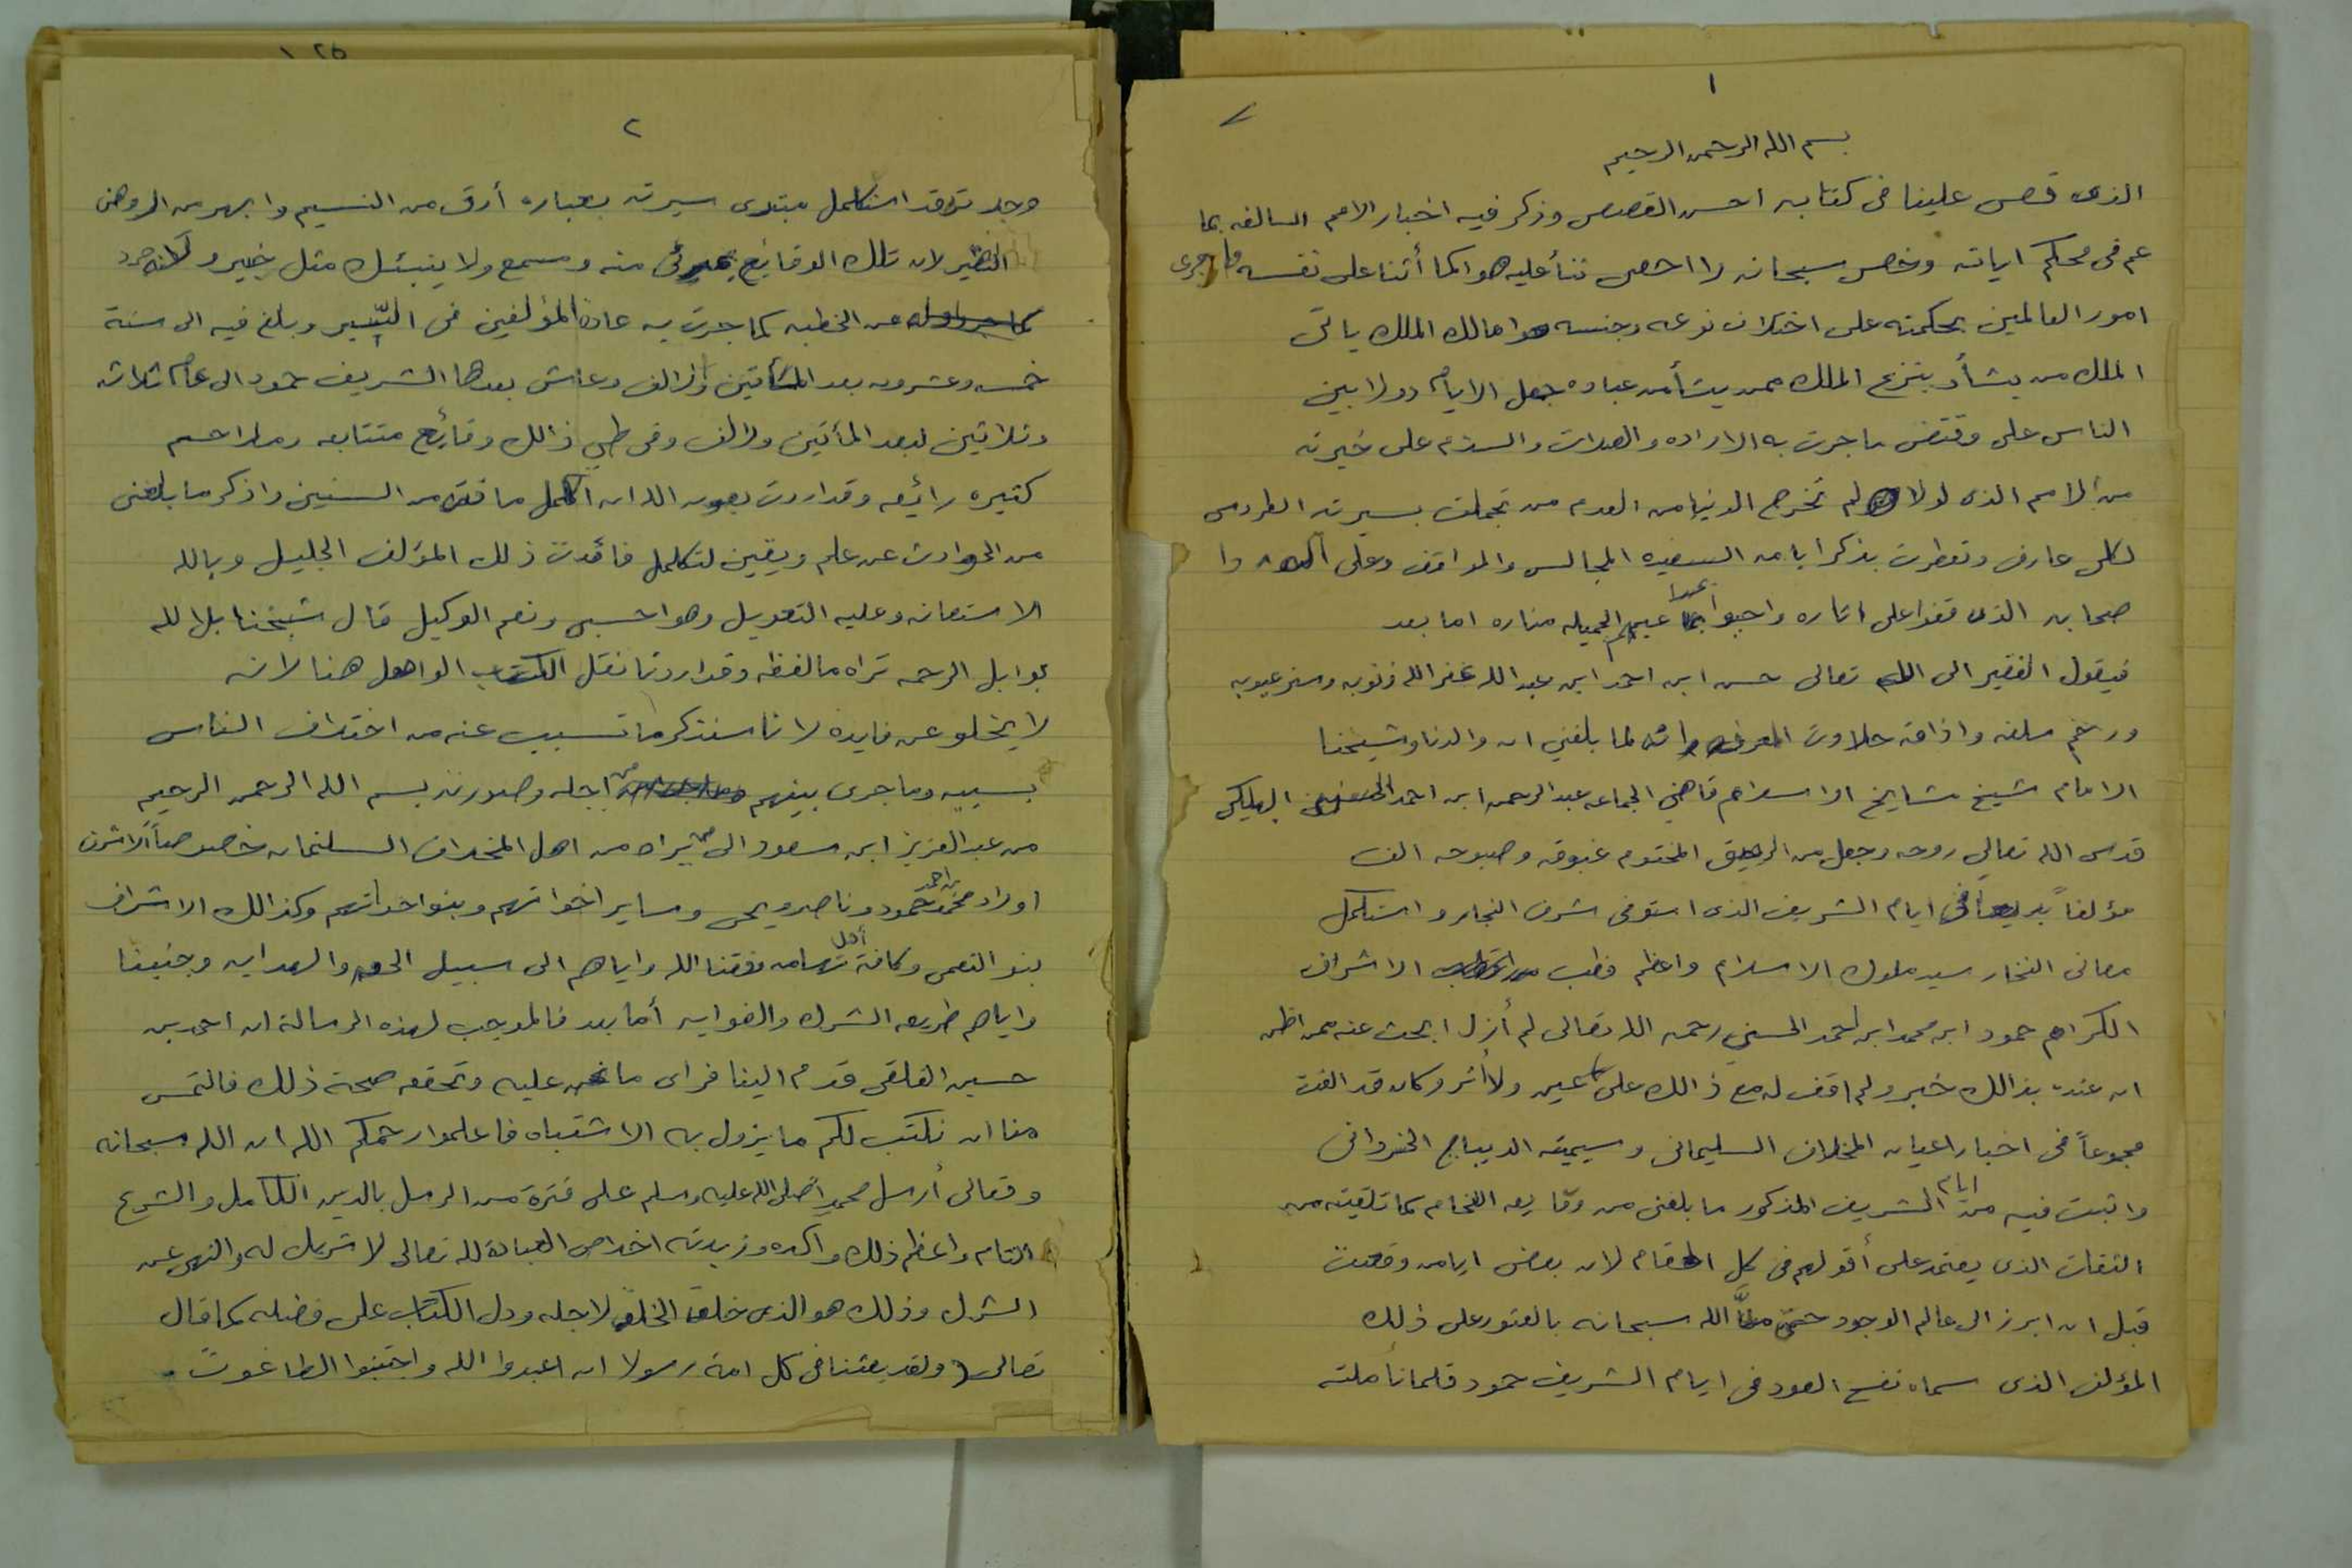 ١
بسم الله الرحمن الرحيم
الذى قصص علينا فى كتابه احسن القصص وذكر فيه اخبار الامم السالفه بما
عم فى محكم اياته وخص سبحانه لا احصى ثنأ عليه هوا كما أثنا على نفسه فاجرى
امور العالمين بحكمته على اختلاف نوعه وجنسه هوا مالك الملك ياتى
الملك من يشأ وينزع الملك ممن يشأ من عباده جعل الايام دولا بين
الناس على وقتضى ما جرت به الاراده والصلات والسلام على خيرته
من الامم الذى لولاه لم تخرج الدنيا من العدم من تجملت بسيرته الطروس
لكل عارف وتعطرت بذكر ايامه السعيده المجالس والمواقف وعلى آله وا
صحابه الذى قفوا على اثاره واحيوا الجميله مناره اما بعد
فيقول الفقير الى الله تعالى حسن ابن احمد ابن عبد الله غفر الله ذنوبه وستر عيوبه
ورحم سلفه واذاقه حلاوت المعرفه وانه لما بلغني ان والدنا وشيخنا
الامام شيخ مشايخ الاسلام قاضي الجماعه عبد الرحمن ابن احمد البهكلي
قدس الله تعالى روحه وجعل من الرحيق المختوم غبوقه وصبوحه الف
مؤلفاً بديعا فى ايام الشريف الذى استوفى شرف النجار واستكمل
معانى الفخار سيد ملوك الاسلام واعظم قطب من اقطاب الاشراف
الكرام حمود ابن محمد ابن احمد الحسني رحمه الله تعالى لم أزل ابحث عنه ممن اظن
ان عنده بذالك خبر ولم اقف له مع ذالك على عين ولا أثر وكان قد الفت
مجموعاً فى اخبار اعيان المخلاف السليمانى وسيميته الديباج الخسروانى
واثبت فيه من ايام الشريف المذكور ما بلغنى من وقايعه الفخام كما تلقيته من
الثقات الذى يعتمد على أقولهم فى كل المقام لان بعض ايامه وقعت
قبل ان ابرز الى عالم الوجود حتى منَّ الله سبحانه بالعثور على ذلك
المؤلف الذى سماه نفح العود فى ايام الشريف حمود فلما تأملته
٢
وجدته قد استكمل مبتدى سيرته بعباره أرق من النسيم وابهر من الروض
النظير لان تلك الوقايع بمرئى منه ومسمع ولا ينبئك مثل خبير ولاكنه جرد
عن الخطبه كما جرت به عادة المؤلفين فى السير وبلغ فيه الى سنة
خمسه وعشرون بعد المأتين والالف وعاش بعدها الشريف حمود الى عام ثلاثه
وثلاثين بعد المأتين والالف وفى طي ذالك وقائع متتابعه وملاحم
كثيره رائعه وقد اردت بعون الله ان اكمل ما نقص من السنين واذكر ما بلغنى
من الحوادث عن علم ويقين لتكمل فائدت ذلك المؤلف الجليل وبالله
الاستعانه وعليه التعويل وهوا حسبى ونعم الوكيل قال شيخنا بل الله
بوابل الرحمه تراه ما لفظه وقد اردنا نقل الكتاب الواصل هنا لانه
لا يخلو عن فايدة لانا سنذكر ما تسبب عنه من اختلاف الناس
بسببه وما جرى بينهم من اجله وصورته بسم الله الرحمن الرحيم
من عبد العزيز ابن سعود الى من يراه من اهل المخلاف السليمان خصوصاً لاشرف
اولاد محمد بن احمد حمود وناصر ويحى وساير اخوانهم وبنو اخواتهم وكذالك الاشراف
بنو النعمى وكافة أهل تهامه وفقنا الله واياهم الى سبيل الحق والهدايه وجنبنا
واياهم طريقه الشرك والغوايه أما بعد فالموجب لهذه الرسالة ان احمد بن
حسين الفلقى قدم الينا فراى ما نحن عليه وتحققه صحة ذلك فالتمس
منا ان نكتب لكم ما يزول به الاشتباه فاعلموا رحمكم الله ان الله سبحانه
وتعالى أرسل محمداً صلى الله عليه وسلم على فترة من الرسل بالدين الكامل والشرع
التام واعظم ذلك واكده وزبدته اخلاص العبادة لله تعالى لا شريك له والنهى عن
الشرك وذلك هو الذى خلق الخلق لاجله ودل الكتاب على فضله كما قال
تعالى (ولقد بعثنا فى كل امة رسولا ان اعبدوا الله واجتنبوا الطاغوت